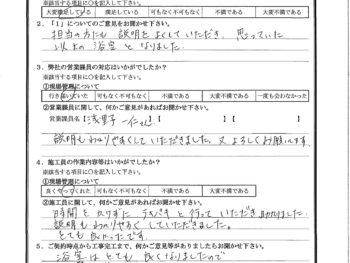 ※該当する項目に○を記入して下さい。
大変満足している 満足している 可もなく不可もなく 不満である 大変不満である
2．「1」についてのご意見をお聞かせ下さい。
担当の方も 説明をよくしていただき、思っていた
以上の浴室となりました。
3．弊社の営業課員の対応はいかがでしたか？
※該当する項目に○を記入して下さい。
①現場管理について
行き届いていた 可もなく不可もなく 不満である 大変不満である 一度も会わなかった
②営業課員に関して、何かご意見があればお聞かせ下さい。
営業課員名【 】【 】
説明もわかりやすくしていただきました。又よろしくお願いします。
4．施工員の作業内容等はいかがでしたか？
※該当する項目に○を記入して下さい。
①現場管理について
良くやってくれた 可もなく不可もなく 不満である 大変不満である
②施工員に関して、何かご意見があればお聞かせ下さい。
時間を たがずに きちんと行っていただき助かりました。
説明もわかりやすくしていただきました。
とても良かったです。
5．ご契約時点から工事完工まで、何かご意見等がありましたらお聞かせ下さい。
浴室はとても良くなりましたので